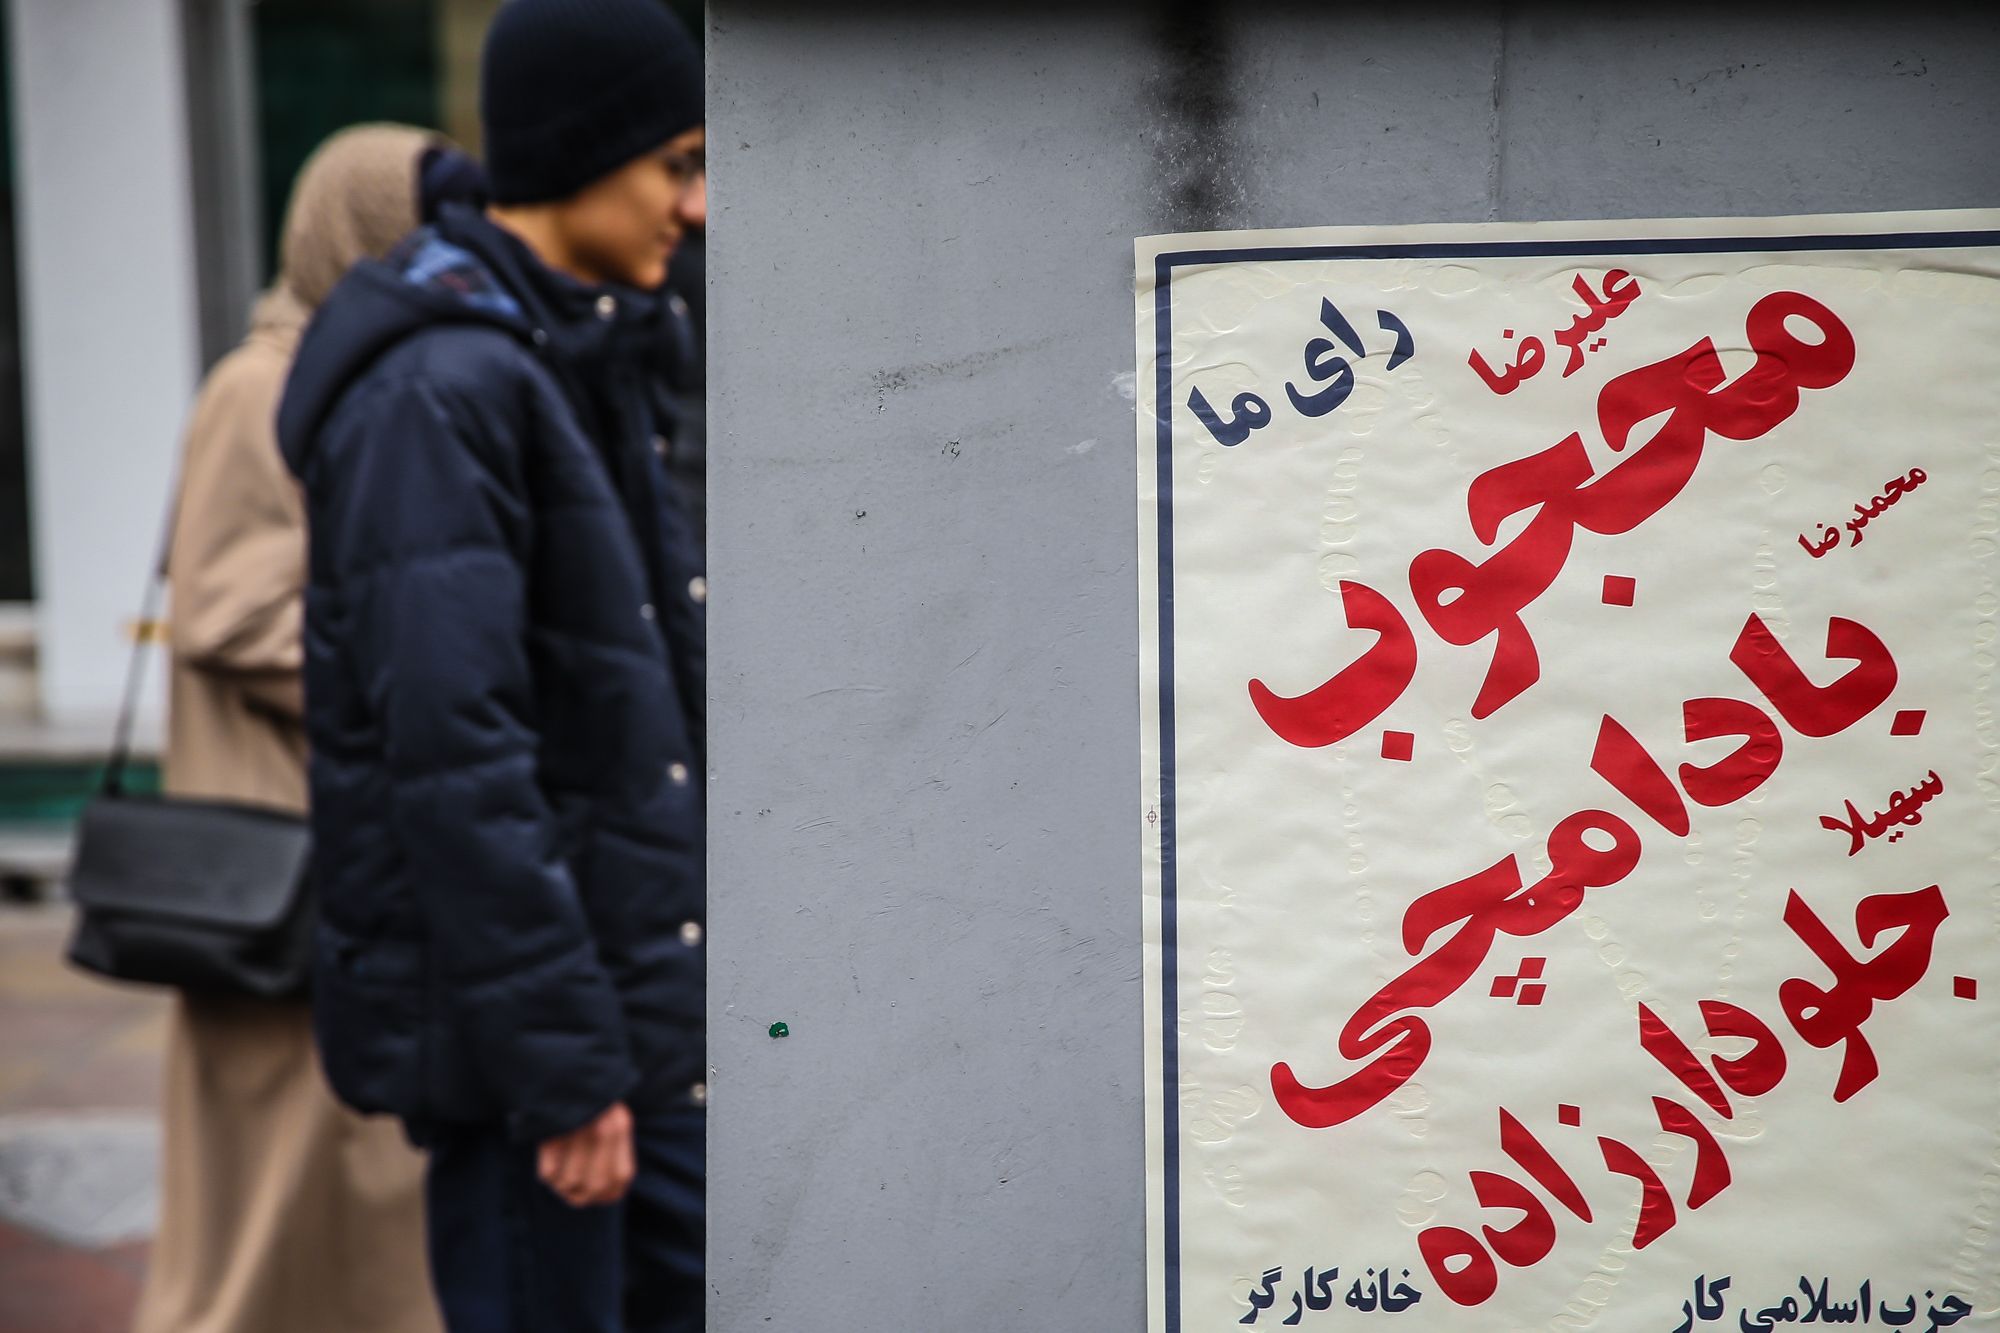 رای ما
علیرضا
محجوب
محمدرضا
بادامچی
سهیلا
جلودارزاده
حزب اسلامی کار
خانه کارگر